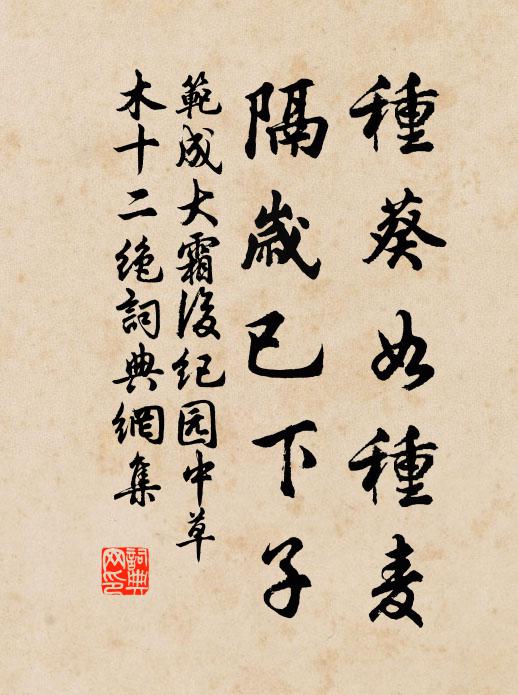 種葵如種麦
隔歳已下子
範成大霜後纪园中草
木十二绝詞典網集
詞典网印